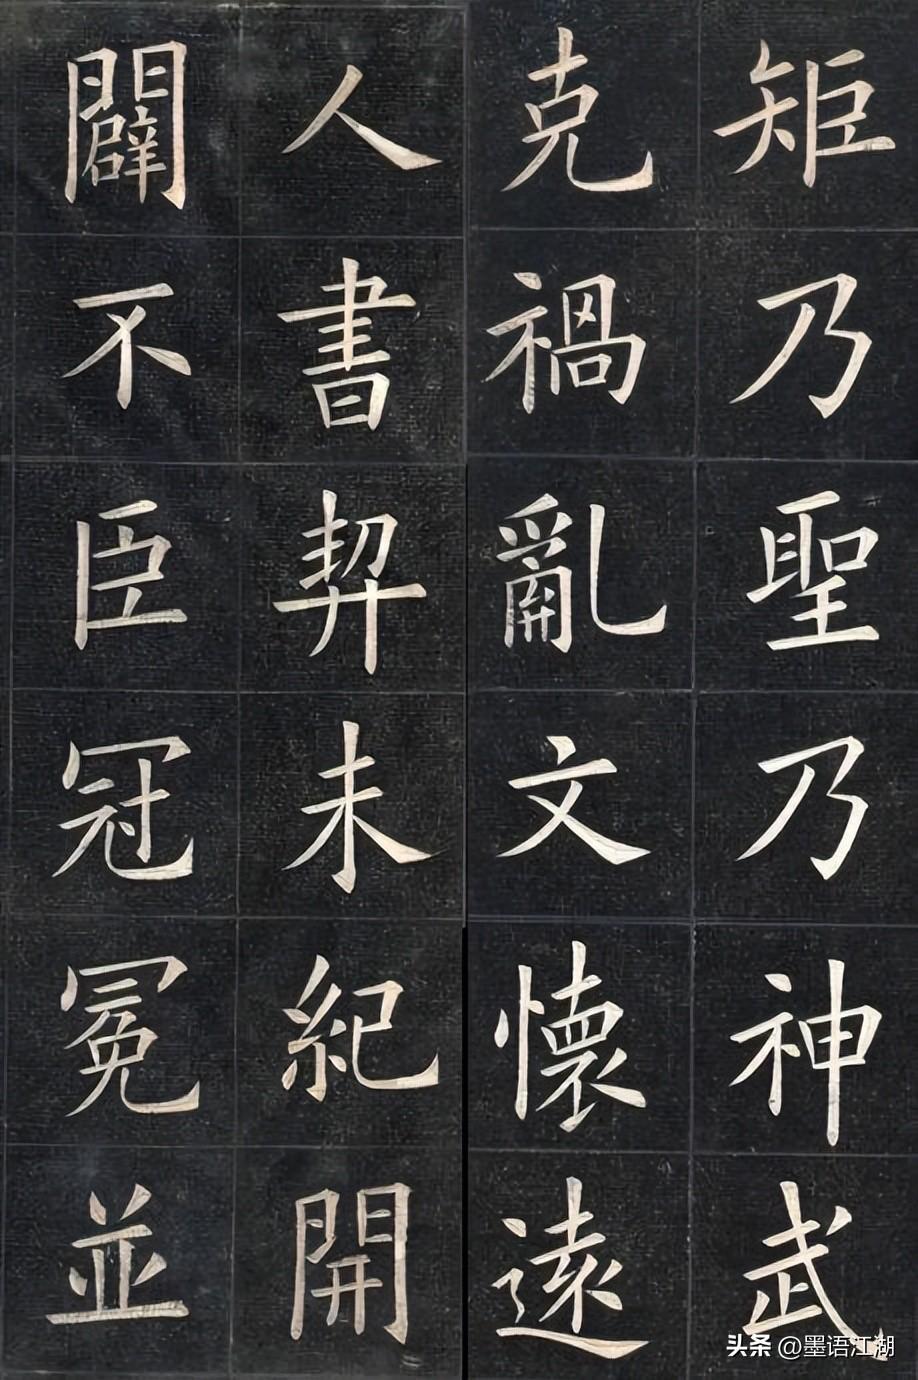 矩乃聖乃神武
克禍亂文懷遠
人書契未紀開
闢不臣冠冕並
头条 @墨语江湖